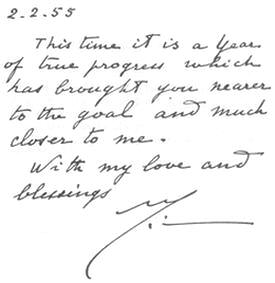 2.2.55
This time it is a Year
of true progress which
has brought you nearer
to the goal and much
closer to me.
With my love and
blessings